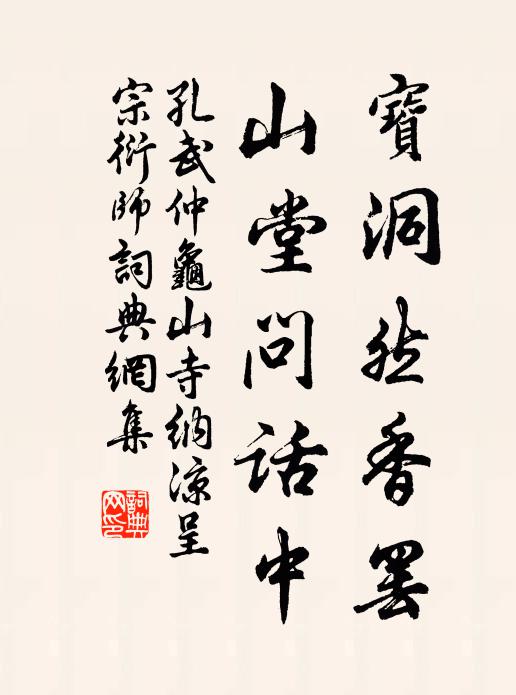 寶洞然香罢
山堂問話中
孔武仲龜山寺納凉呈
宗衍師詞典網集
詞典
网印